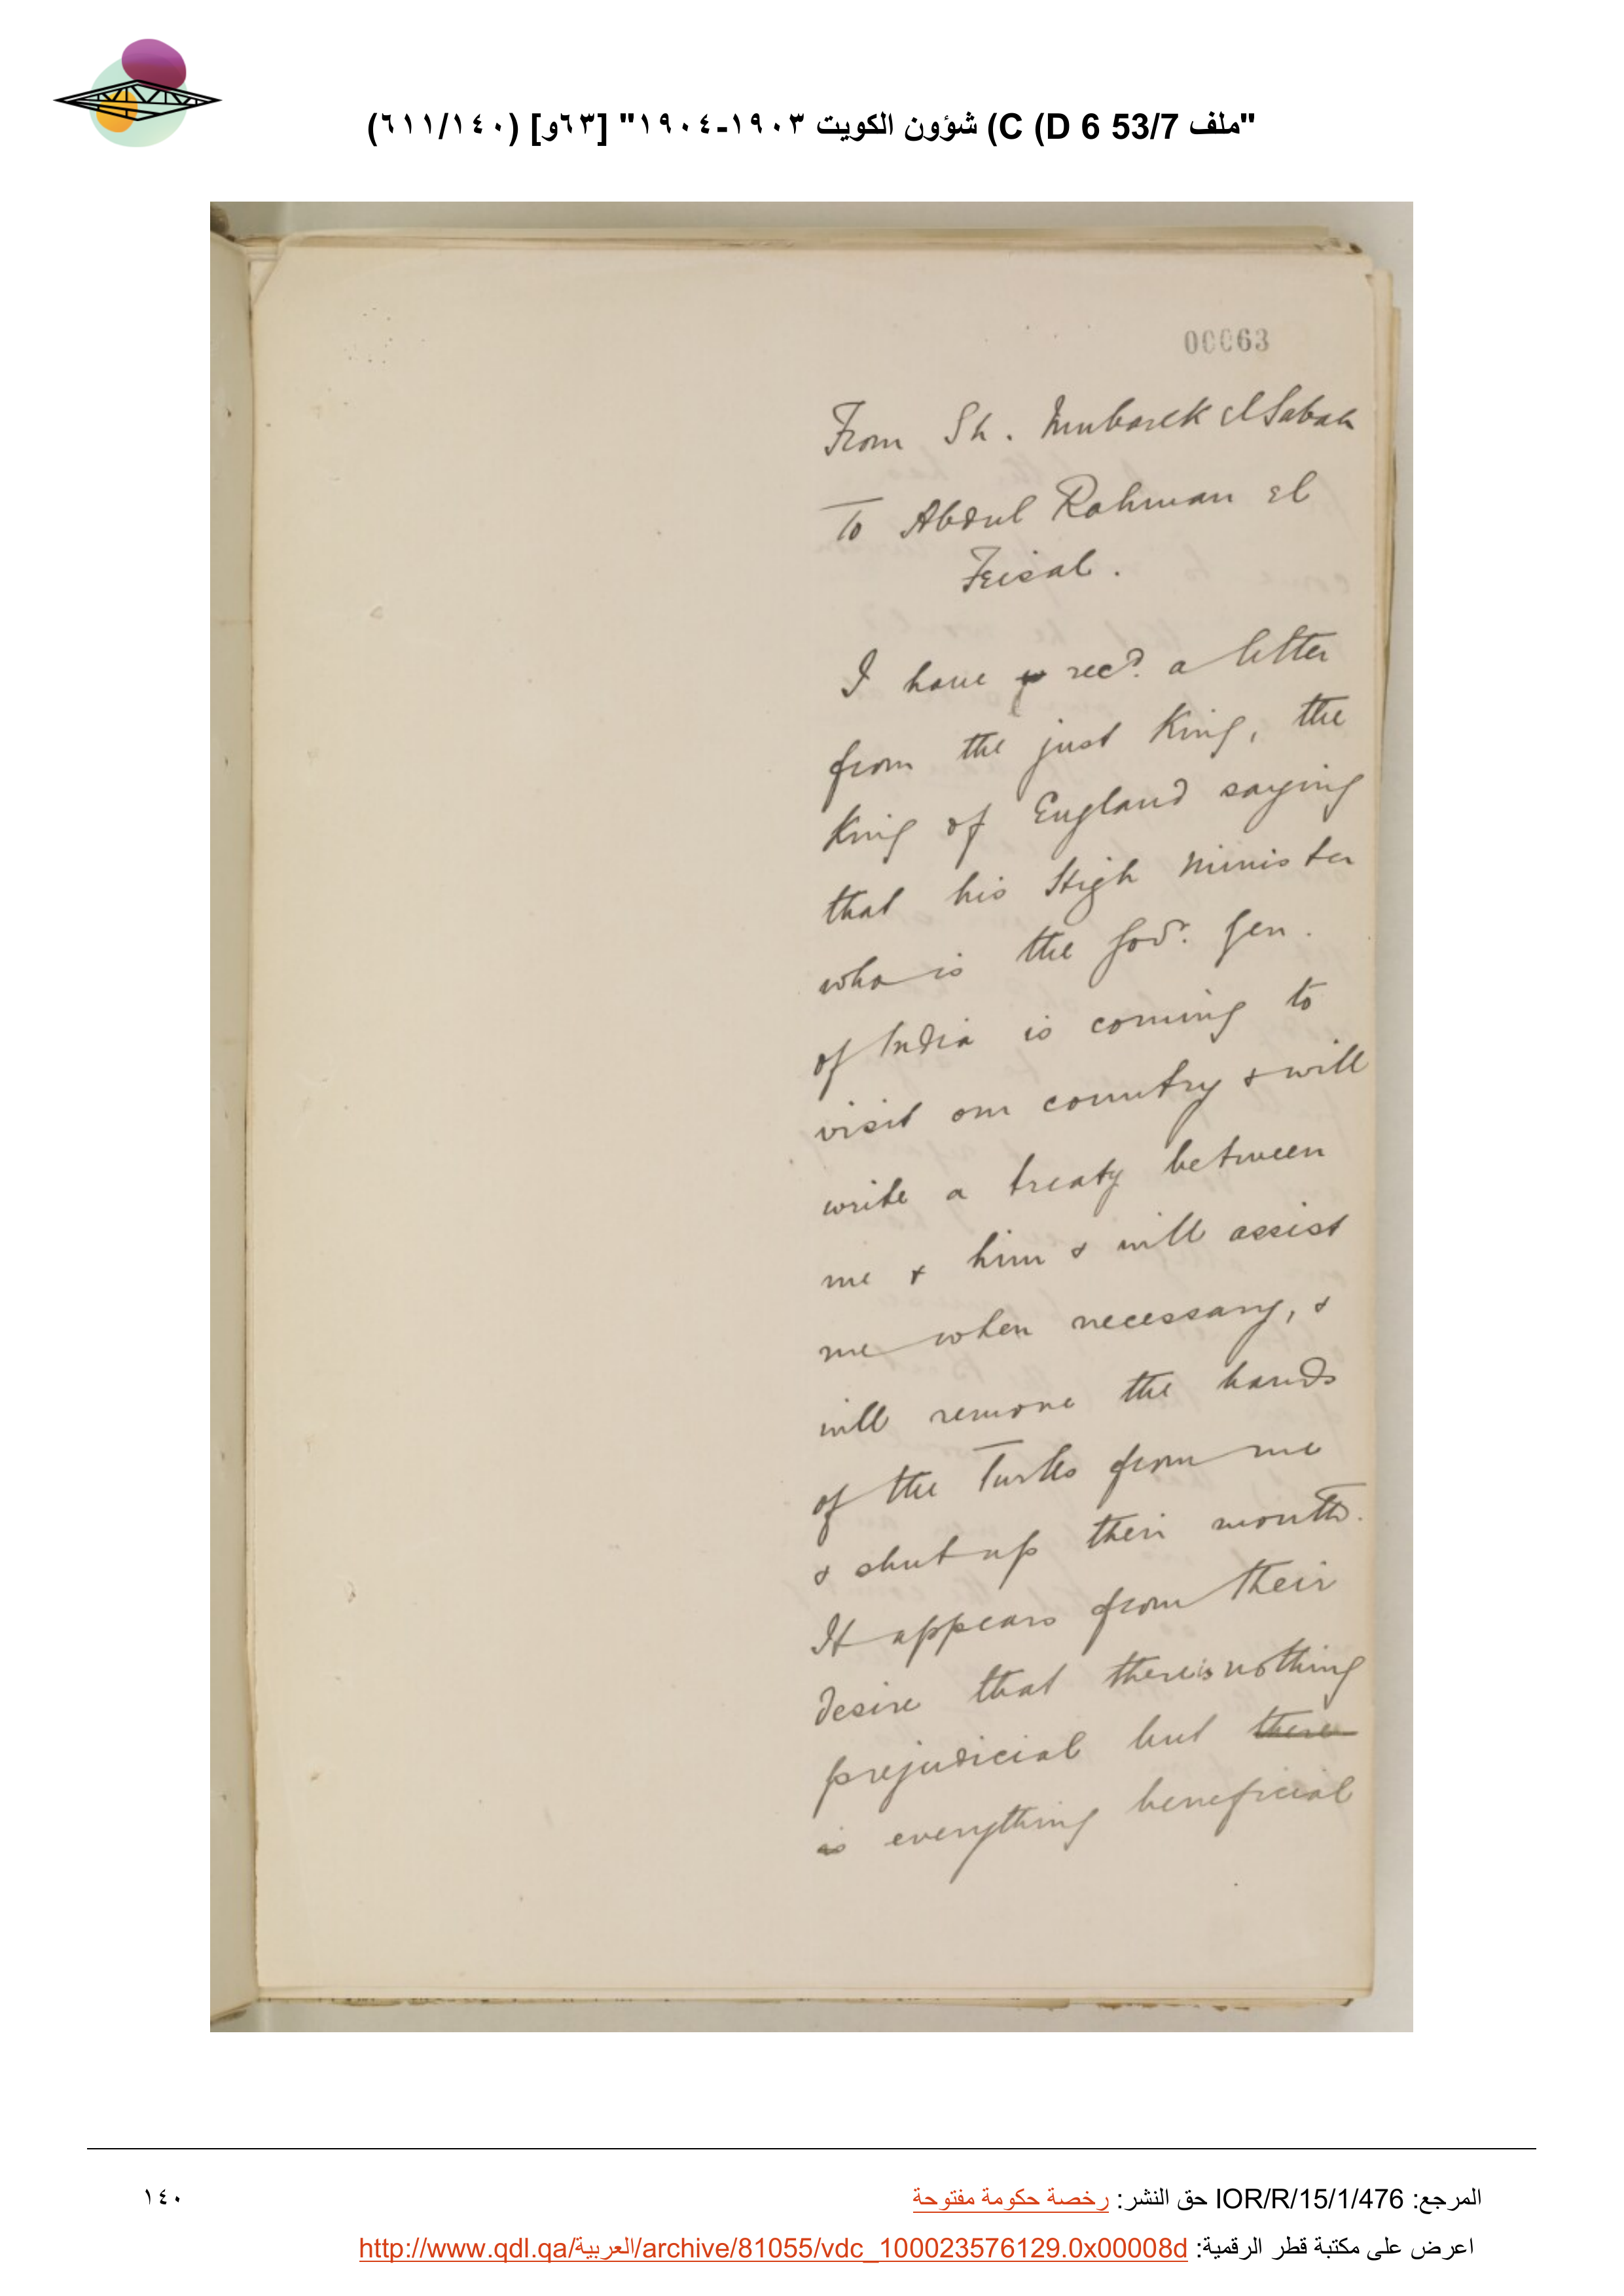 "ملف 53/7 C (D 6) شؤون الكويت ١٩٠٣-١٩٠٤" [٦٣و] (٦١١/١٤٠)
00063
From Sh. Mubarek el Sabah
To Abdul Rahman el
Feisal.
I have recd. a letter
from the just King, the
King of England saying
that his High Minister
who is the Govr. Gen.
of India is coming to
visit our country & will
write a treaty between
me & him & will assist
me when necessary, &
will remove the hands
of the Turks from me
& shut up their mouths.
It appears from their
desire that there is nothing
prejudicial but there
is everything beneficial
المرجع: IOR/R/15/1/476 حق النشر: رخصة حكومة مفتوحة
١٤٠
اعرض على مكتبة قطر الرقمية: http://www.qdl.qa/العربية/archive/81055/vdc_100023576129.0x00008d